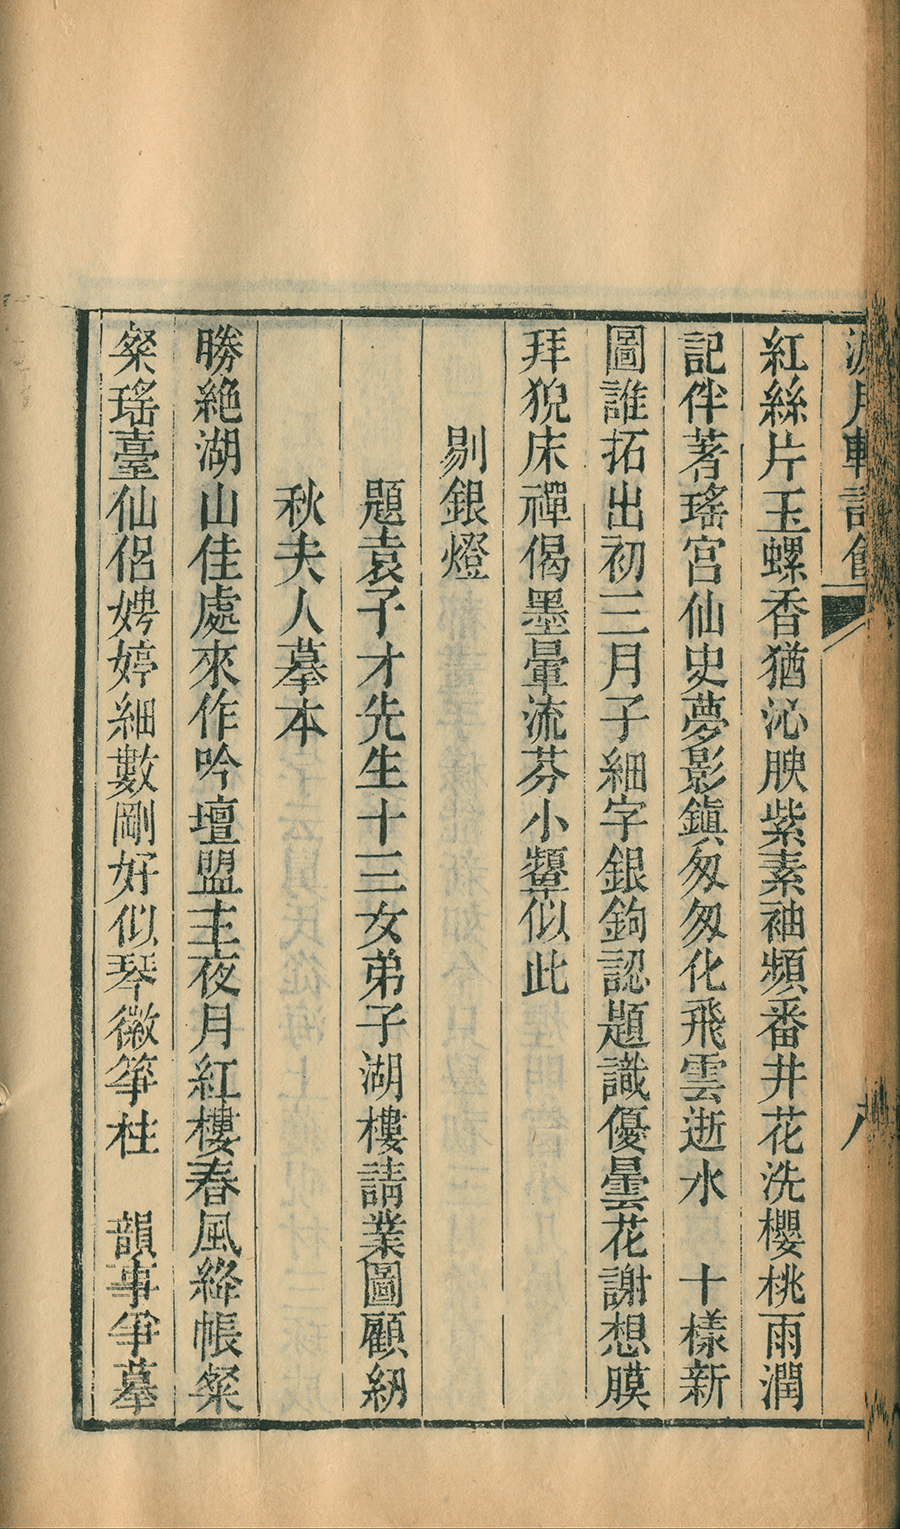 月軒詩餘
八
紅絲片玉螺香猶沁腴紫素袖頻番井花洗櫻桃雨潤
記伴著瑤宮仙史夢影鎮匆匆化飛雲逝水　十樣新
圖誰拓出初三月子細字銀鉤認題識優曇花謝想膜
拜猊床禪偈墨暈流芬小顰似此
剔銀燈
題袁子才先生十三女弟子湖樓請業圖顧紉
秋夫人摹本
勝絶湖山佳處來作吟壇盟主夜月紅樓春風絳帳粲
粲瑤臺仙侶娉婷細數剛好似琴徽箏柱　韻事爭摹